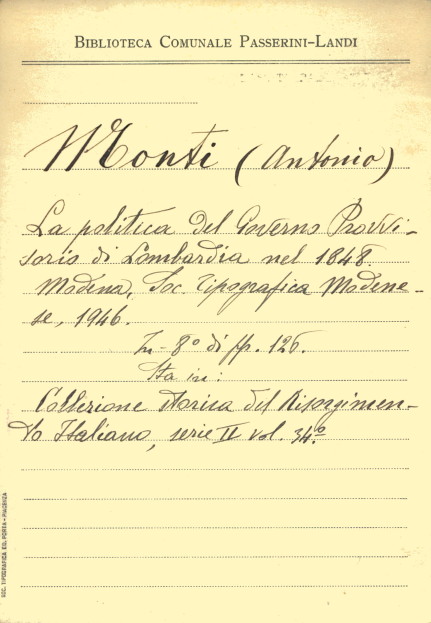 BIBLIOTECA COMUNALE PASSERINI-LANDI
Monti (Antonio)
La politica del Governo Provvi-
sorio di Lombardia nel 1848.
Modena, Soc. Tipografica Modene-
se, 1946.
In-8° di pp. 126.
Sta in:
Collezione storica del Risorgimen-
to Italiano, serie II vol. 34°
SOC. TIPOGRAFICA ED. PORTA - PIACENZA